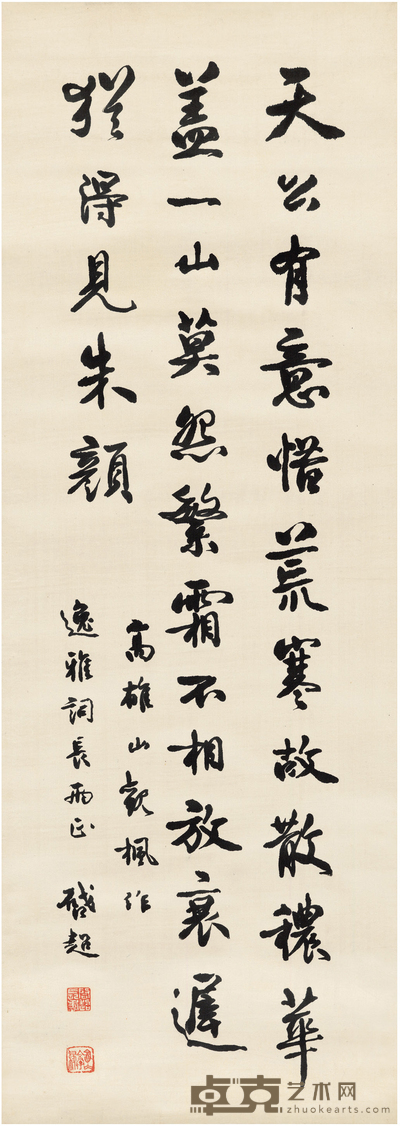 天公有意惜荒寒故散穠華
蓋一山莫怨繁霜不相放衰遲
猶得見朱顏
高雄山觀楓作
逸雅詞長兩正 啟超
卓克艺术网
zhuokearts.com